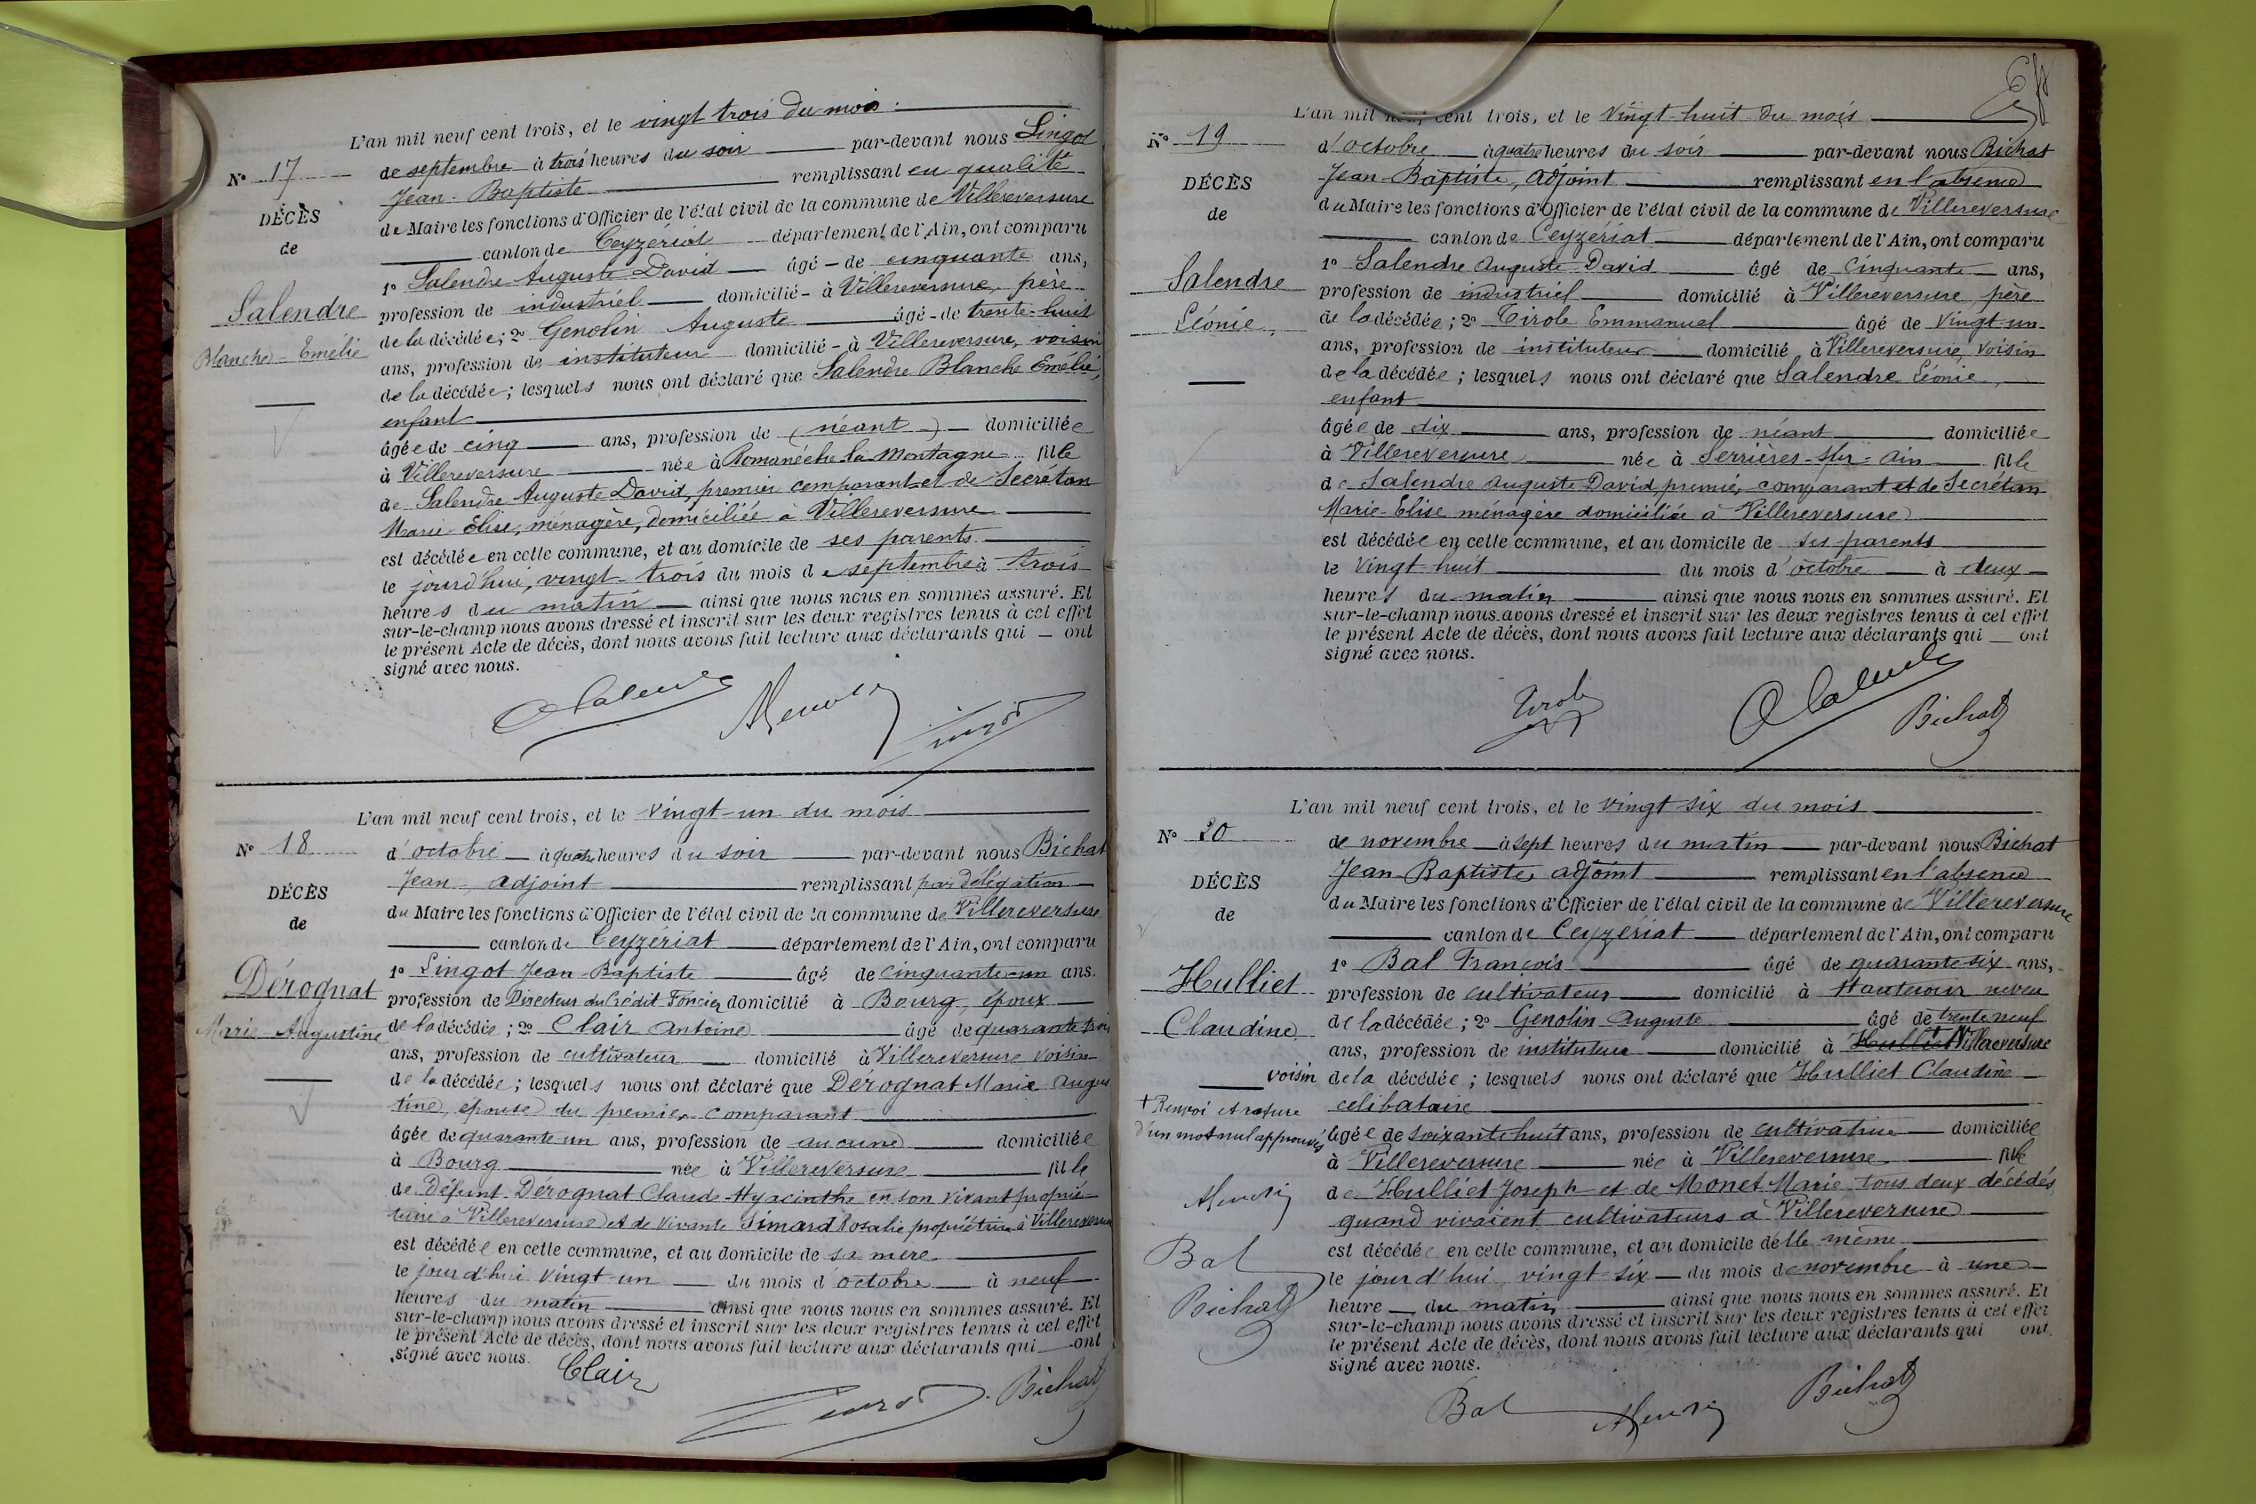 L'an mil neuf cent trois, et le vingt trois du mois
N° 17
de septembre à trois heures du soir par-devant nous Lingot
Jean-Baptiste remplissant en qualité
DÉCÈS
de Maire les fonctions d'Officier de l'état civil de la commune de Villereversure
de
canton de Ceyzériat département de l'Ain, ont comparu
1° Salendre Auguste David âgé de cinquante ans,
Salendre
profession de industriel domicilié à Villereversure, père
de la décédée; 2° Genolin Auguste âgé de trente-huit
Blanche-Emélie
ans, profession de instituteur domicilié à Villereversure, voisin
de la décédée; lesquels nous ont déclaré que Salendre Blanche Emélie,
enfant
âgée de cinq ans, profession de (néant) domiciliée
à Villereversure née à Romanéche-la-Montagne fille
de Salendre Auguste David, premier comparant et de Secrétan
Marie-Elise, ménagère, domiciliée à Villereversure
est décédée en cette commune, et au domicile de ses parents
le jourd'hui, vingt-trois du mois de septembre à trois
heures du matin ainsi que nous nous en sommes assuré. Et
sur-le-champ nous avons dressé et inscrit sur les deux registres tenus à cet effet
le présent Acte de décès, dont nous avons fait lecture aux déclarants qui ont
signé avec nous.
L'an mil neuf cent trois, et le vingt-un du mois
N° 18
d'octobre à quatre heures du soir par-devant nous Bichat
Jean, adjoint remplissant par délégation
DÉCÈS
du Maire les fonctions d'Officier de l'état civil de la commune de Villereversure
de
canton de Ceyzériat département de l'Ain, ont comparu
1° Lingot Jean-Baptiste âgé de cinquante-un ans.
Dérognat
profession de Directeur du Crédit Foncier domicilié à Bourg, époux
Marie-Augustine
de la décédée; 2° Clair Antoine âgé de quarante trois
ans, profession de cultivateur domicilié à Villereversure voisin
de la décédée; lesquels nous ont déclaré que Dérognat Marie Augus
tine, épouse du premier comparant
âgée de quarante-un ans, profession de aucune domiciliée
à Bourg née à Villereversure fille
de Défunt Dérognat Claude-Hyacinthe en son vivant proprié
taire à Villereversure et de vivante Simard Rosalie propriétaire à Villereversure
est décédée en cette commune, et au domicile de sa mère
le jourd'hui vingt-un du mois d'octobre à neuf
heures du matin ainsi que nous nous en sommes assuré. Et
sur-le-champ nous avons dressé et inscrit sur les deux registres tenus à cet effet
le présent Acte de décès, dont nous avons fait lecture aux déclarants qui ont
signé avec nous.
Clair
Bichat
L'an mil neuf cent trois, et le vingt-huit du mois
N° 19
d'octobre à quatre heures du soir par-devant nous Bichat
Jean-Baptiste, adjoint remplissant en l'absence
DÉCÈS
du Maire les fonctions d'Officier de l'état civil de la commune de Villereversure
de
canton de Ceyzériat département de l'Ain, ont comparu
1° Salendre Auguste David âgé de cinquante ans,
Salendre
profession de industriel domicilié à Villereversure père
de la décédée; 2° Tirole Emmanuel âgé de vingt-un
Léonie
ans, profession de instituteur domicilié à Villereversure, voisin
de la décédée; lesquels nous ont déclaré que Salendre Léonie,
enfant
âgée de dix ans, profession de néant domiciliée
à Villereversure née à Serrières-sur-Ain fille
de Salendre Auguste David, premier comparant et de Secrétan
Marie-Elise ménagère domiciliée à Villereversure
est décédée en cette commune, et au domicile de ses parents
le vingt-huit du mois d'octobre à deux
heures du matin ainsi que nous nous en sommes assuré. Et
sur-le-champ nous avons dressé et inscrit sur les deux registres tenus à cet effet
le présent Acte de décès, dont nous avons fait lecture aux déclarants qui ont
signé avec nous.
Tirole
Bichat
L'an mil neuf cent trois, et le vingt-six du mois
N° 20
de novembre à sept heures du matin par-devant nous Bichat
Jean-Baptiste, adjoint remplissant en l'absence
DÉCÈS
du Maire les fonctions d'Officier de l'état civil de la commune de Villereversure
de
canton de Ceyzériat département de l'Ain, ont comparu
1° Bal François âgé de quarante-six ans,
Hulliet
profession de cultivateur domicilié à neveu
Claudine
de la décédée; 2° Genolin Auguste âgé de trente neuf
ans, profession de instituteur domicilié à Hulliet + Villereversure
voisin de la décédée; lesquels nous ont déclaré que Hulliet Claudine
célibataire
+ Renvoi et rature
d'un mot nul approuvés
âgée de soixante huit ans, profession de cultivatrice domiciliée
à Villereversure née à Villereversure fille
de Hulliet Joseph et de Monet Marie tous deux décédés
quand vivaient cultivateurs à Villereversure
est décédée en cette commune, et au domicile d'elle même
Bal
le jourd'hui vingt-six du mois de novembre à une
Bichat
heure du matin ainsi que nous nous en sommes assuré. Et
sur-le-champ nous avons dressé et inscrit sur les deux registres tenus à cet effet
le présent Acte de décès, dont nous avons fait lecture aux déclarants qui ont
signé avec nous.
Bal
Bichat